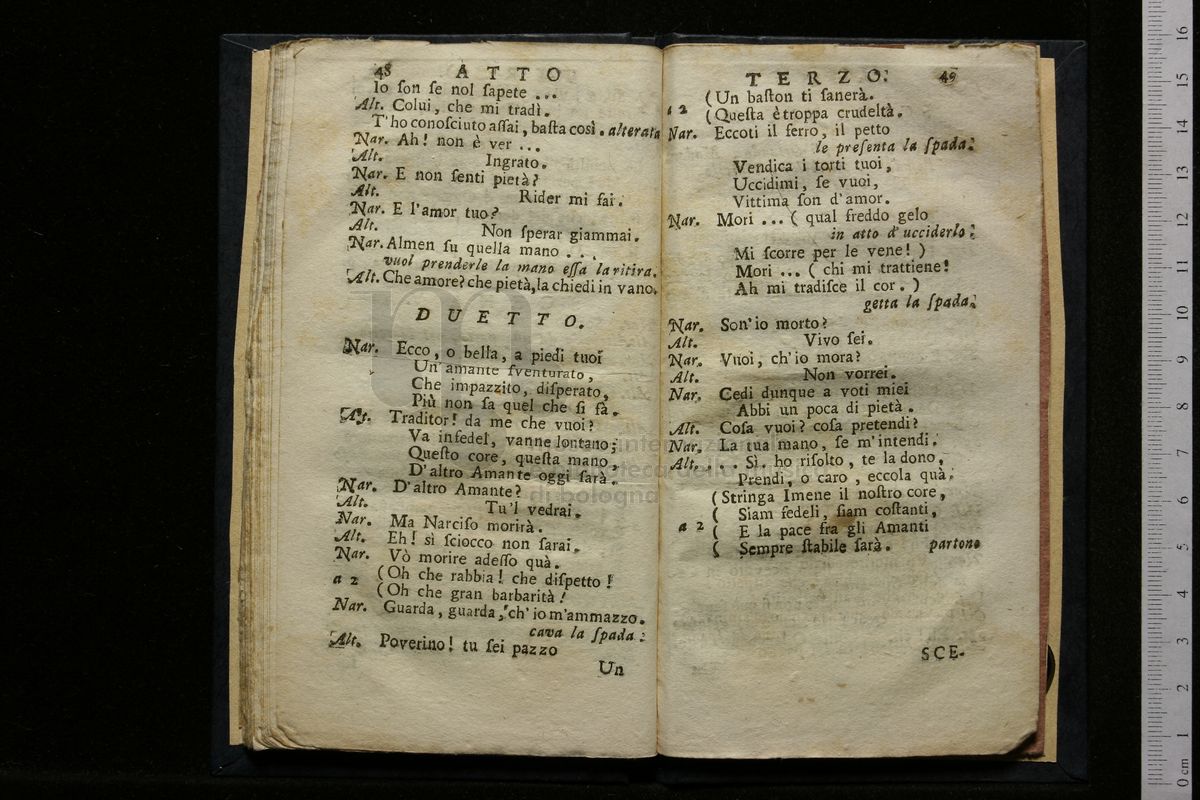 48 ATTO
Io ſon ſe nol ſapete ...
Alt. Colui, che mi tradì.
T'ho conoſciuto aſſai, baſta così. alterata
Nar. Ah! non è ver ...
Alt. Ingrato.
Nar. E non ſenti pietà?
Alt. Rider mi fai.
Nar. E l'amor tuo?
Alt. Non ſperar giammai.
Nar. Almen ſu quella mano ...
vuol prenderle la mano eſſa la ritira.
Alt. Che amore? che pietà, la chiedi in vano.
DUETTO.
Nar. Ecco, o bella, a piedi tuoi
Un amante ſventurato,
Che impazzito, diſperato,
Più non ſa quel che ſi fà.
Alt. Traditor! da me che vuoi?
Va infedel, vanne lontano;
Queſto core, queſta mano,
D'altro Amante oggi ſarà.
Nar. D'altro Amante?
Alt. Tu'l vedrai.
Nar. Ma Narciſo morirà.
Alt. Eh! sì ſciocco non ſarai.
Nar. Vò morire adeſſo quà.
a 2 (Oh che rabbia! che diſpetto!
(Oh che gran barbarità!
Nar. Guarda, guarda, ch'io m'ammazzo.
cava la ſpada.
Alt. Poverino! tu ſei pazzo
Un
TERZO. 49
(Un baſton ti ſanerà.
a 2 (Queſta è troppa crudeltà.
Nar. Eccoti il ferro, il petto
le preſenta la ſpada.
Vendica i torti tuoi,
Uccidimi, ſe vuoi,
Vittima ſon d'amor.
Nar. Mori ... ( qual freddo gelo
in atto d'ucciderlo.
Mi ſcorre per le vene! )
Mori ... ( chi mi trattiene!
Ah mi tradiſce il cor. )
getta la ſpada.
Nar. Son'io morto?
Alt. Vivo ſei.
Nar. Vuoi, ch'io mora?
Alt. Non vorrei.
Nar. Cedi dunque a voti miei
Abbi un poca di pietà.
Alt. Coſa vuoi? coſa pretendi?
Nar. La tua mano, ſe m'intendi.
Alt. ... Sì. ho riſolto, te la dono,
Prendi, o caro, eccola quà.
(Stringa Imene il noſtro core,
( Siam fedeli, ſiam coſtanti,
a 2 ( E la pace fra gli Amanti
( Sempre ſtabile ſarà. partono
SCE-
di bologna
0 cm 1 2 3 4 5 6 7 8 9 10 11 12 13 14 15 16